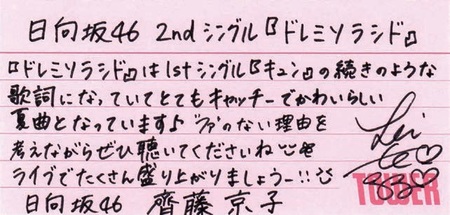 日向坂46 2ndシングル『ドレミソラシド』
『ドレミソラシド』は1stシングル『キュン』の続きのような
歌詞になっていてとてもキャッチーでかわいらしい
夏曲となっています♪“ファ”のない理由を
考えながらぜひ聴いてくださいね
ライブでたくさん盛り上がりましょうー!!
日向坂46 齊藤京子
TOWER